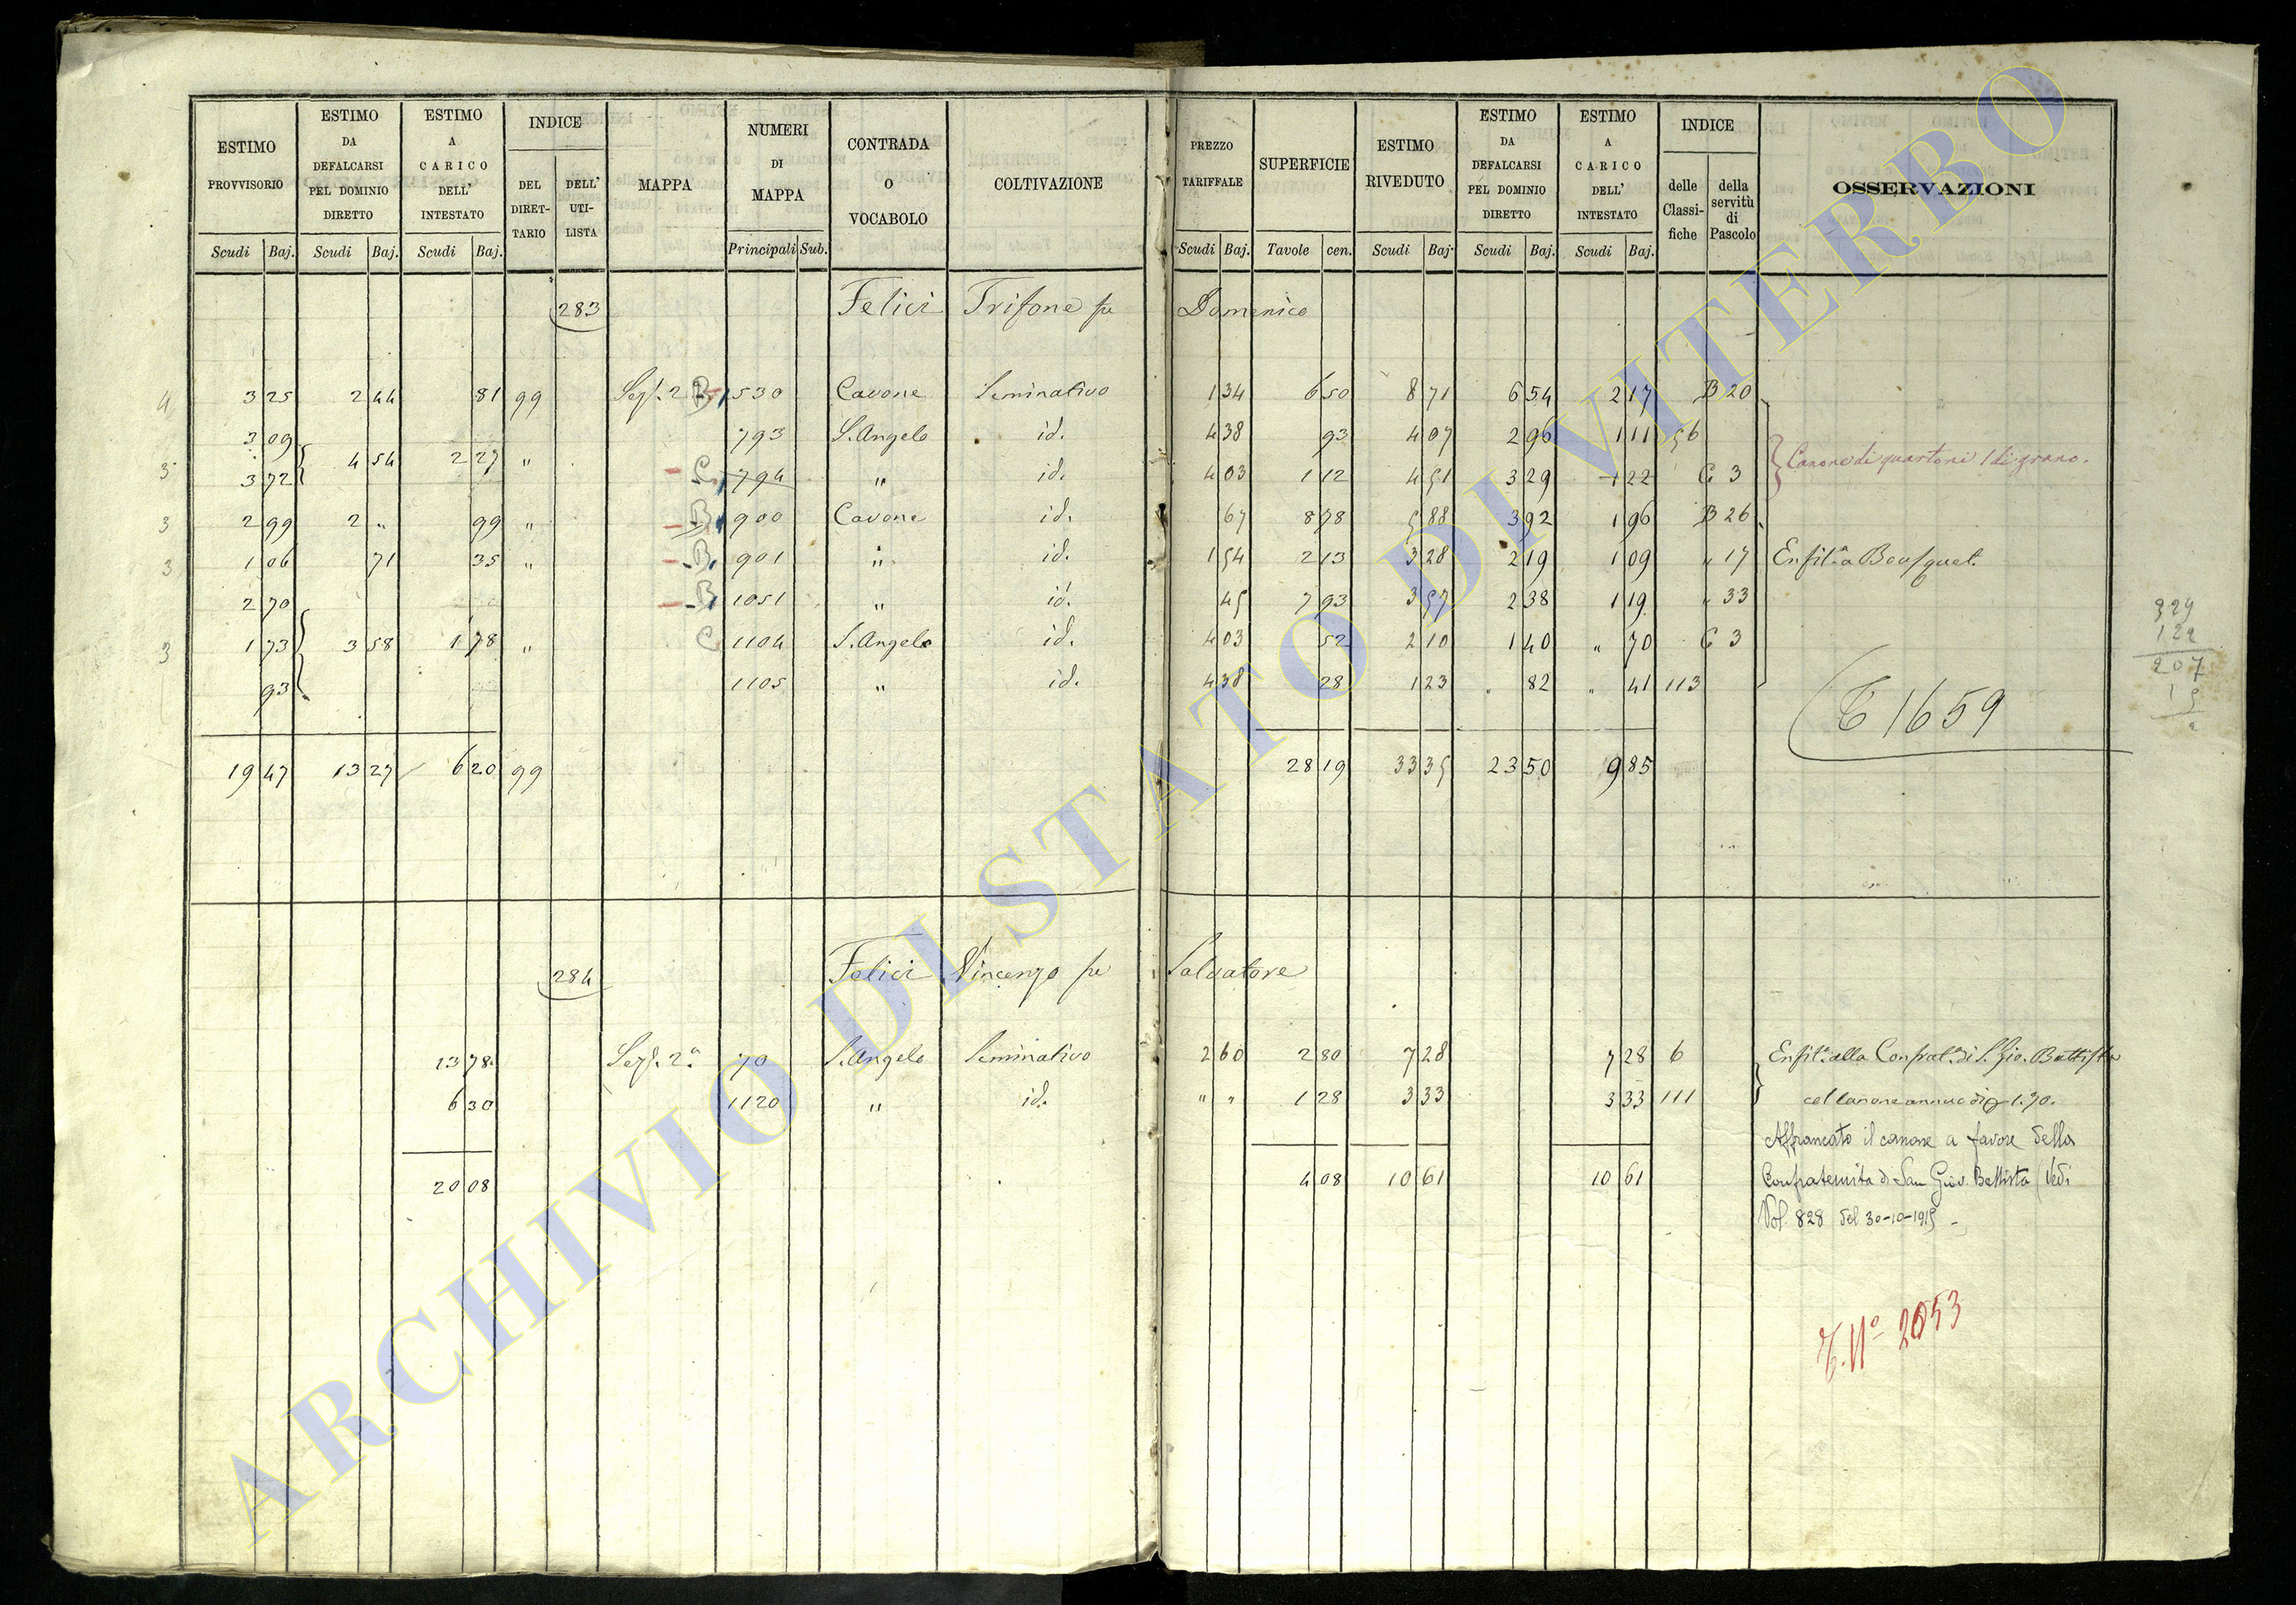 ESTIMO PROVVISORIO | ESTIMO DA DEFALCARSI PEL DOMINIO DIRETTO | ESTIMO A CARICO DELL' INTESTATO | INDICE DEL DIRETTARIO | DELL' UTILISTA | MAPPA | NUMERI DI MAPPA | CONTRADA O VOCABOLO | COLTIVAZIONE | PREZZO TARIFFALE | SUPERFICIE | ESTIMO RIVEDUTO | ESTIMO DA DEFALCARSI PEL DOMINIO DIRETTO | ESTIMO A CARICO DELL' INTESTATO | INDICE delle Classifiche | della servitù di Pascolo | OSSERVAZIONI
Scudi Baj. | Scudi Baj. | Scudi Baj. | Principali Sub. | Scudi Baj. | Tavole cen. | Scudi Baj. | Scudi Baj. | Scudi Baj.
283 Felici Trifone fu Domenico
4 3 25 2 44 81 99 Sez. 2 B 530 Cavone Seminativo 1 34 6 50 8 71 6 54 2 17 B 20
3 09 793 S. Angelo id. 4 38 93 4 07 2 96 1 11 56
3 3 72 4 54 2 27 " C 794 " id. 4 03 1 12 4 51 3 29 1 22 C 3 Canone di quartoni 1 di grano.
3 2 99 2 " 99 " B 900 Cavone id. 67 8 78 5 88 3 92 1 96 B 26
3 1 06 71 35 " B 901 " id. 1 54 2 13 3 28 2 19 1 09 " 17 Enfit. a Bousquet.
2 70 B 1051 " id. 45 7 93 3 57 2 38 1 19 " 33
3 1 73 3 58 1 78 " C 1104 S. Angelo id. 4 03 52 2 10 1 40 " 70 C 3
93 1105 " id. 4 38 28 1 23 " 82 " 41 113
329
122
207
15
2
C 1659
19 47 13 27 6 20 99 28 19 33 35 23 50 9 85
284 Felici Vincenzo fu Salvatore
13 78 Sez. 2ª 70 S. Angelo Seminativo 2 60 2 80 7 28 7 28 6 Enfit. alla Confrat. di S. Gio. Battista
6 30 1120 " id. " " 1 28 3 33 3 33 111 col canone annuo di 1.70.
Affrancato il canone a favore della
20 08 4 08 10 61 10 61 Confraternita di San Giov. Battista (Vedi
Vol. 828 del 30-10-1915
C. Nº 2053
ARCHIVIO DI STATO DI VITERBO